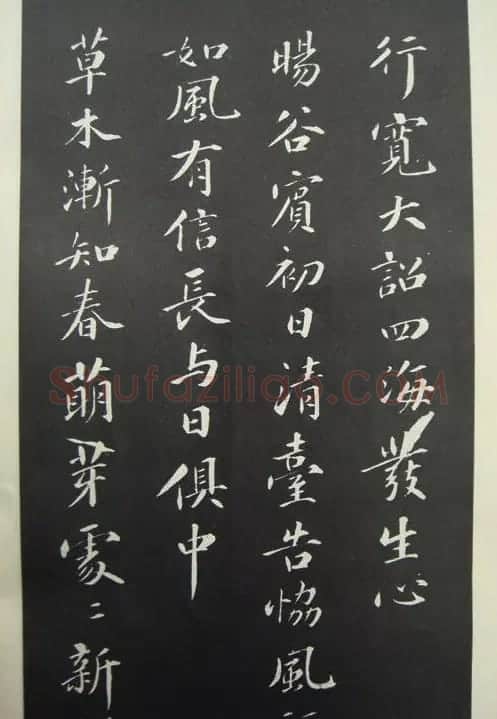 行寬大詔四海發生心
暘谷賓初日清臺告協風
如風有信長与日俱中
草木漸知春萌芽處〻新
Shufaziliao.COM